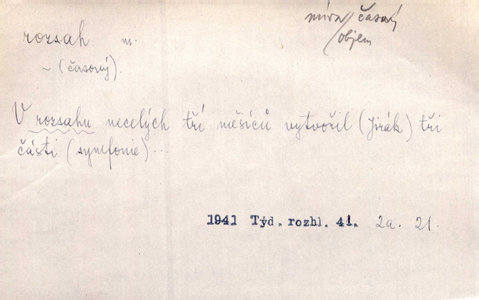 míra/časový
objem
rozsah m.
~ (časový).
V rozsahu necelých tří měsíců vytvořil (Jirák) tři
části (symfonie)...
1941 Týd. rozhl. 41. 2a. 21.